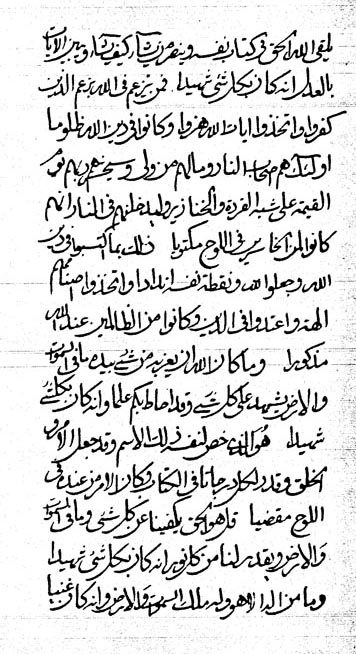 يلقى الله الحق فى كتاب نفسه وينصر من يشاء كيف يشاء ويبين الايات
بالعدل انه كان بكل شئ شهيدا فمن يزعم فى الله زعم الذين
كفروا واتخذوا ايات الله هزوا وكانوا فى دين الله ظلوما
اولئك هم اصحاب النار ومالهم من ولى وسيحشرهم يوم
القيمة على شبه القردة والخنازير وليدخلنهم فى النار انهم
كانوا من الخاسرين فى اللوح مكتوبا ذلك بما اكتسبوا فى دين
الله وجعلوا لله ونقطة نفسه اندادا واتخذوا اصنامهم
الهة واعتدوا فى الدين وكانوا من الظالمين عند الله
مذكورا وما كان الله ان يعزب من شئ بيده ما فى السموات
والارض يشهد على كل شئ وقد احاط بكم علما وانه كان بكل شئ
شهيدا هو الذى خص لنفسه ذلك الاسم وقد جعل الامر
الخلق وقدر لكل درجاتا فى الكتاب وكان الامر من عنده فى
اللوح مقضيا قل هو الحق يكفينا عن كل شئ وما فى السموات
والارض ويقدر لنا من كل نور انه كان بكل شئ شهيدا
وما من اله الا هو وله ملك السموات والارض وانه كان غنيا